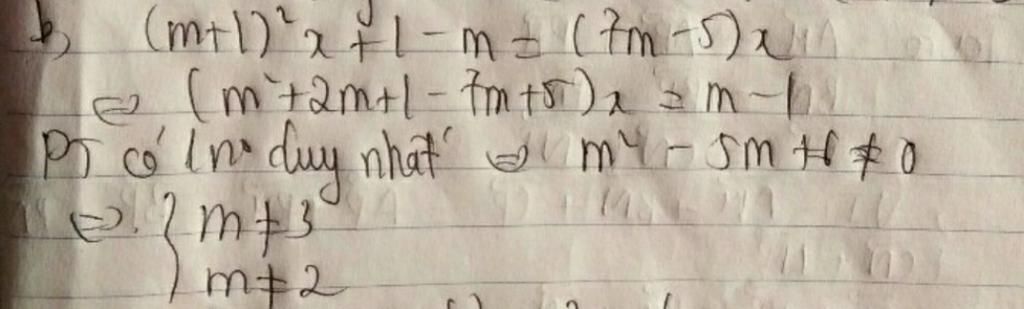 b, (m+1)²x + 1 - m = (7m - 5)x
⇔ (m²+2m+1 - 7m+5)x = m - 1
PT có 1 n° duy nhất ⇔ m² - 5m + 6 ≠ 0
⇔ { m ≠ 3
m ≠ 2